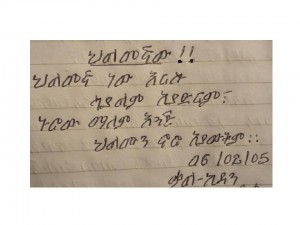 ህልመኛው !!
ህልመኛ ነው እርሱ
አያልም አያድርም፡
ኑሮው ማለም እንጂ
ህልሙን ኖሮ አያውቅም ፡፡
06/02/05
ቃል-ኪዳን